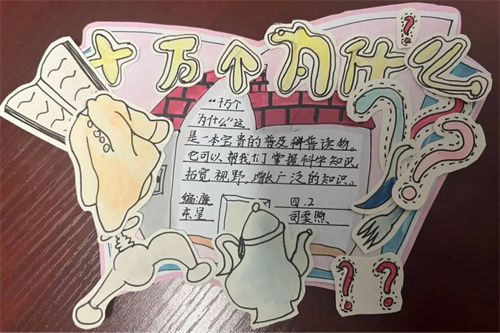 十万个为什么
“十万个
为什么”这
是一本宝贵的普及科普读物。
它可以帮我们掌握科学知识,
拓宽视野,增长广泛的知识。
四.2
? ? ?
? ?